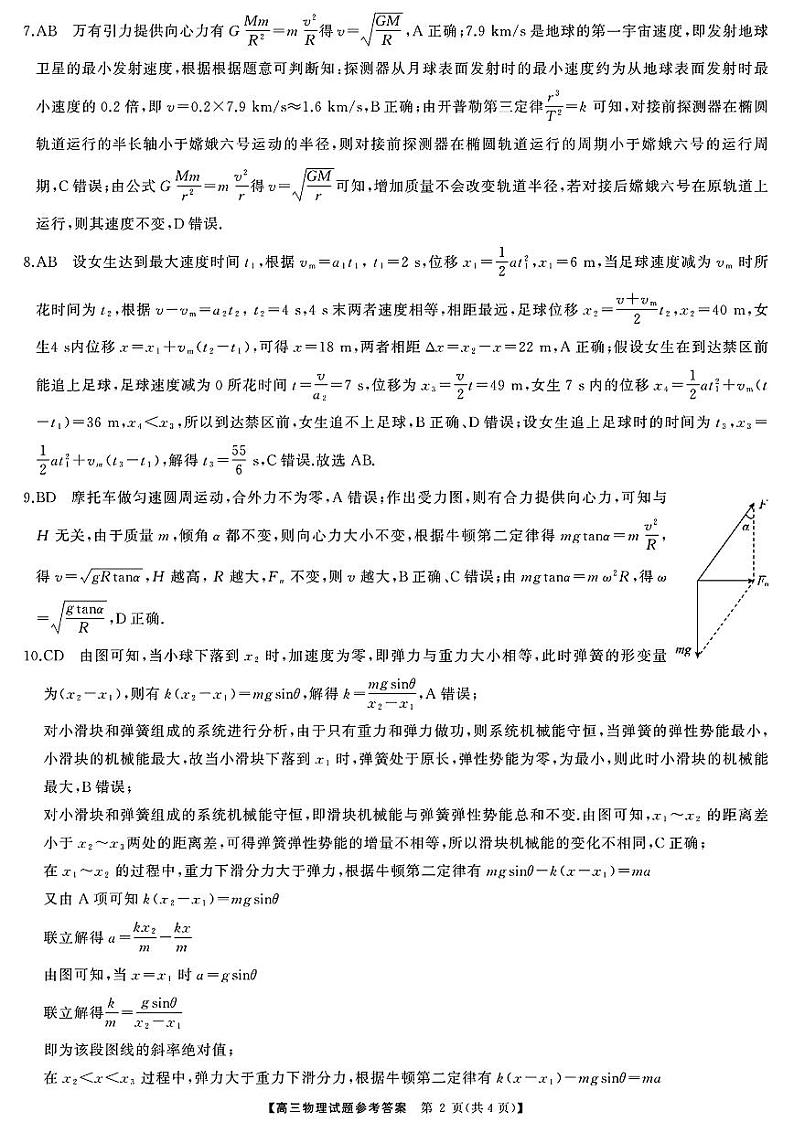 7.AB 万有引力提供向心力有 G Mm/R² = m v²/R 得 v=√(GM/R),A 正确;7.9 km/s 是地球的第一宇宙速度,即发射地球
卫星的最小发射速度,根据根据题意可判断知:探测器从月球表面发射时的最小速度约为从地球表面发射时最
小速度的 0.2 倍,即 v=0.2×7.9 km/s≈1.6 km/s,B 正确;由开普勒第三定律 r³/T²=k 可知,对接前探测器在椭圆
轨道运行的半长轴小于嫦娥六号运动的半径,则对接前探测器在椭圆轨道运行的周期小于嫦娥六号的运行周
期,C 错误;由公式 G Mm/r² = m v²/r 得 v=√(GM/r) 可知,增加质量不会改变轨道半径,若对接后嫦娥六号在原轨道上
运行,则其速度不变,D 错误.
8.AB 设女生达到最大速度时间 t₁,根据 vₘ=a₁t₁, t₁=2 s,位移 x₁=1/2 at₁²,x₁=6 m,当足球速度减为 vₘ 时所
花时间为 t₂,根据 v-vₘ=a₂t₂, t₂=4 s,4 s 末两者速度相等,相距最远,足球位移 x₂=(v+vₘ)/2 t₂,x₂=40 m,女
生4 s内位移 x=x₁+vₘ(t₂-t₁),可得 x=18 m,两者相距 Δx=x₂-x=22 m,A 正确;假设女生在到达禁区前
能追上足球,足球速度减为 0 所花时间 t=v/a₂=7 s,位移为 x₃=v/2 t=49 m,女生 7 s 内的位移 x₄=1/2 at₁²+vₘ(t
-t₁)=36 m,x₄<x₃,所以到达禁区前,女生追不上足球,B 正确、D 错误;设女生追上足球时的时间为 t₃,x₃=
1/2 at₁²+vₘ(t₃-t₁),解得 t₃=55/6 s,C 错误.故选 AB.
9.BD 摩托车做匀速圆周运动,合外力不为零,A 错误;作出受力图,则有合力提供向心力,可知与
H 无关,由于质量 m,倾角 α 都不变,则向心力大小不变,根据牛顿第二定律得 mgtanα=m v²/R,
得 v=√(gRtanα),H 越高, R 越大,Fₙ 不变,则 v 越大,B 正确、C 错误;由 mgtanα=m ω²R,得 ω
=√(gtanα/R),D 正确.
F
α
Fₙ
mg
10.CD 由图可知,当小球下落到 x₂ 时,加速度为零,即弹力与重力大小相等,此时弹簧的形变量
为(x₂-x₁),则有 k(x₂-x₁)=mgsinθ,解得 k=mgsinθ/(x₂-x₁),A 错误;
对小滑块和弹簧组成的系统进行分析,由于只有重力和弹力做功,则系统机械能守恒,当弹簧的弹性势能最小,
小滑块的机械能最大,故当小滑块下落到 x₁ 时,弹簧处于原长,弹性势能为零,为最小,则此时小滑块的机械能
最大,B 错误;
对小滑块和弹簧组成的系统机械能守恒,即滑块机械能与弹簧弹性势能总和不变.由图可知,x₁~x₂ 的距离差
小于 x₂~x₃两处的距离差,可得弹簧弹性势能的增量不相等,所以滑块机械能的变化不相同,C 正确;
在 x₁~x₂ 的过程中,重力下滑分力大于弹力,根据牛顿第二定律有 mgsinθ-k(x-x₁)=ma
又由 A 项可知 k(x₂-x₁)=mgsinθ
联立解得 a=kx₂/m-kx/m
由图可知,当 x=x₁ 时 a=gsinθ
联立解得 k/m=gsinθ/(x₂-x₁)
即为该段图线的斜率绝对值;
在 x₂<x<x₃ 过程中,弹力大于重力下滑分力,根据牛顿第二定律有 k(x-x₁)-mgsinθ=ma
【高三物理试题参考答案 第 2 页(共 4 页)】